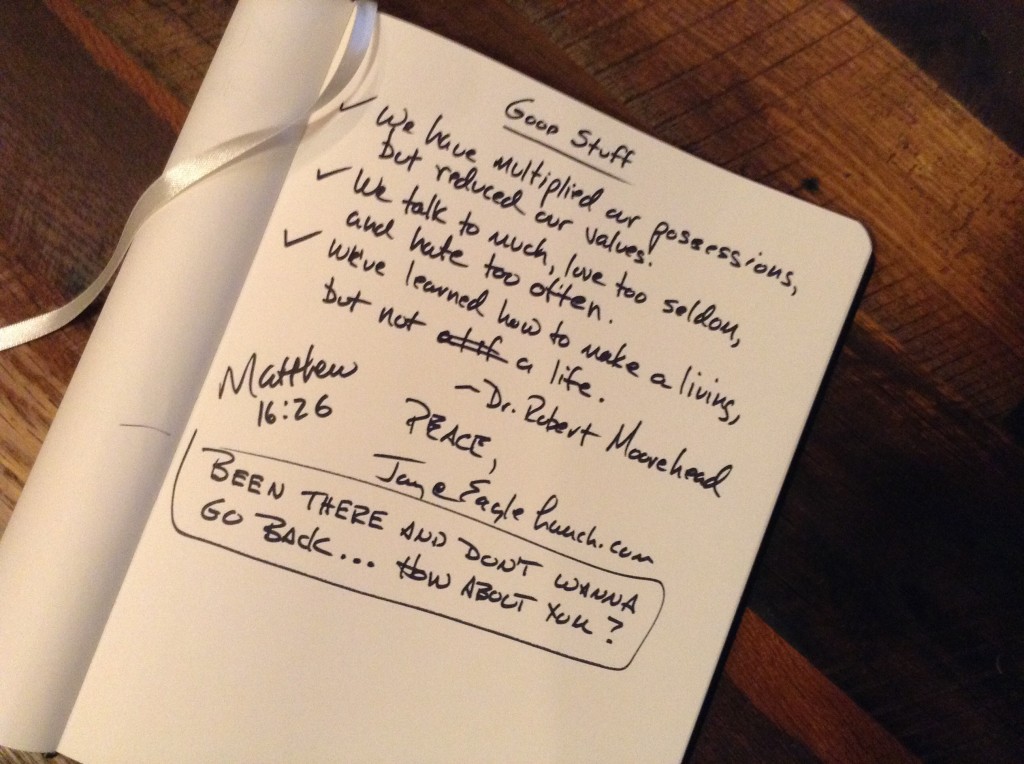 Good Stuff
✓ We have multiplied our possessions,
but reduced our values.
✓ We talk to much, love too seldom,
and hate too often.
✓ We've learned how to make a living,
but not a life.
- Dr. Robert Moorehead
Matthew
16:26
PEACE,
Jay e Eagle Launch.com
BEEN THERE AND DON'T WANNA
GO BACK... HOW ABOUT YOU?